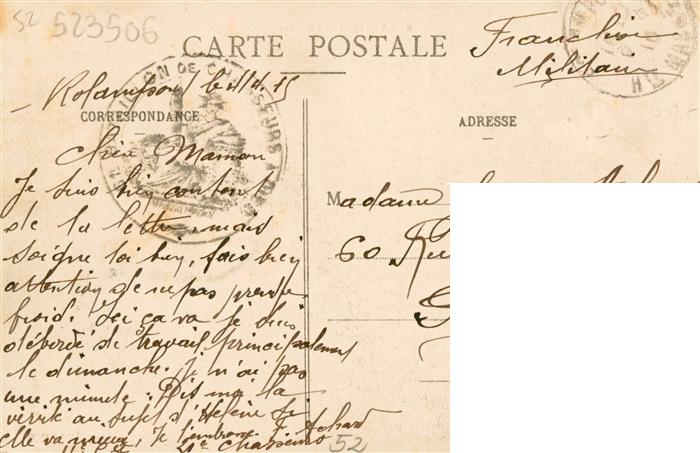 52 523506
CARTE POSTALE
Franchise
Militaire
Rolampont le 11.4.15
CORRESPONDANCE
ADRESSE
Chère Maman
Je suis bien content
de ta lettre, mais
soigne toi bien, fais bien
attention de ne pas prendre
froid. Ici ça va je suis
débordé de travail principalement
le dimanche. Je n'ai pas
une minute. Dis moi la
vérité au sujet d'Hélène si
elle va mieux, Je t'embrasse F. Achard
Chasseurs
52
Madame
60 Rue
BATAILLON DE CHASSEURS A PIED